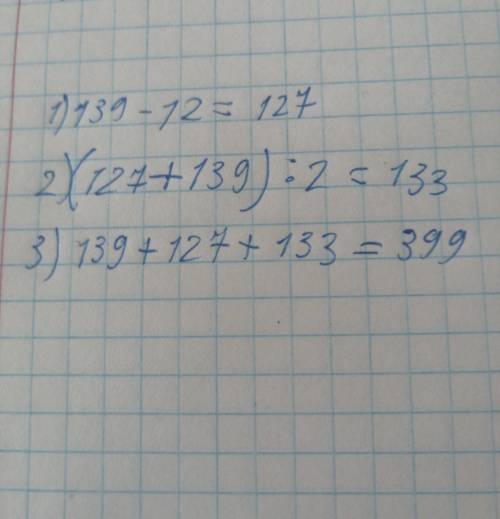 1) 139 - 12 = 127
2) (127 + 139) : 2 = 133
3) 139 + 127 + 133 = 399